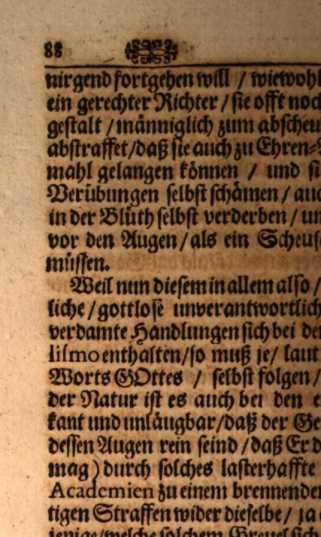 88
nirgend fortgehen will / wiewohl
ein gerechter Richter / sie offt noch
gestalt / männiglich zum abscheu
abstraffet / daß sie auch zu Ehren-
mahl gelangen können / und si
Verübungen selbst schämen / auc
in der Blüth selbst verderben / un
vor den Augen / als ein Scheus
müssen.
Weil nun diesem in allem also /
liche / gottlose unverantwortlich
verdamte Handlungen sich bei de
lismo enthalten / so muß je / laut
Worts GOttes / selbst folgen /
der Natur ist es auch bei den e
kant und unläugbar / daß der Ge
dessen Augen rein seind / daß Er d
mag) durch solches lasterhaffte
Academien zu einem brennende
tigen Straffen wider dieselbe / ja
jenige / welche solchem Greuel sich